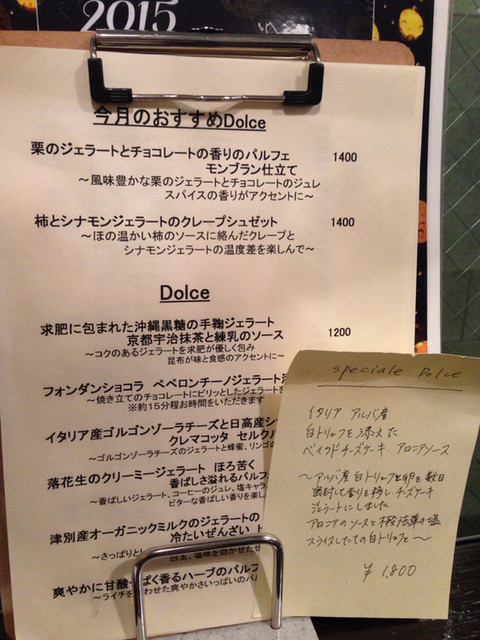 2015
今月のおすすめDolce
栗のジェラートとチョコレートの香りのパルフェ 1400
モンブラン仕立て
～風味豊かな栗のジェラートとチョコレートのジュレ
スパイスの香りがアクセントに～
柿とシナモンジェラートのクレープシュゼット 1400
～ほの温かい柿のソースに絡んだクレープと
シナモンジェラートの温度差を楽しんで～
Dolce
求肥に包まれた沖縄黒糖の手鞠ジェラート
京都宇治抹茶と練乳のソース 1200
～コクのあるジェラートを求肥が優しく包み
昆布が味と食感のアクセントに～
フォンダンショコラ ペペロンチーノジェラート
～焼き立てのチョコレートにピリッとした
※約15分程お時間をいただきます
イタリア産ゴルゴンゾーラチーズと日高産
クレマコッタ セルクル
～ゴルゴンゾーラチーズのジェラートと蜂蜜、リンゴの
落花生のクリーミージェラート ほろ苦く
香ばしさ溢れるパルフ
～香ばしいジェラート、コーヒーのジュレ、塩キャラ
ビターな香ばしい香りを楽し
津別産オーガニックミルクのジェラートの
冷たいぜんざい
～さっぱりと
白玉、塩味を効かせた
爽やかに甘酸っぱく香るハーブのパルフ
～ライチを
わせた爽やかさいっぱいのパル
speciale Dolce
イタリア アルバ産
白トリュフを添えた
ベイクドチーズケーキ アロニアソース
～アルバ産白トリュフと卵を数日
密封して香りを移し チーズケーキ
ジェラートにしました
アロニアのソースと
の塩
スライスしたての白トリュフと～
¥1,800